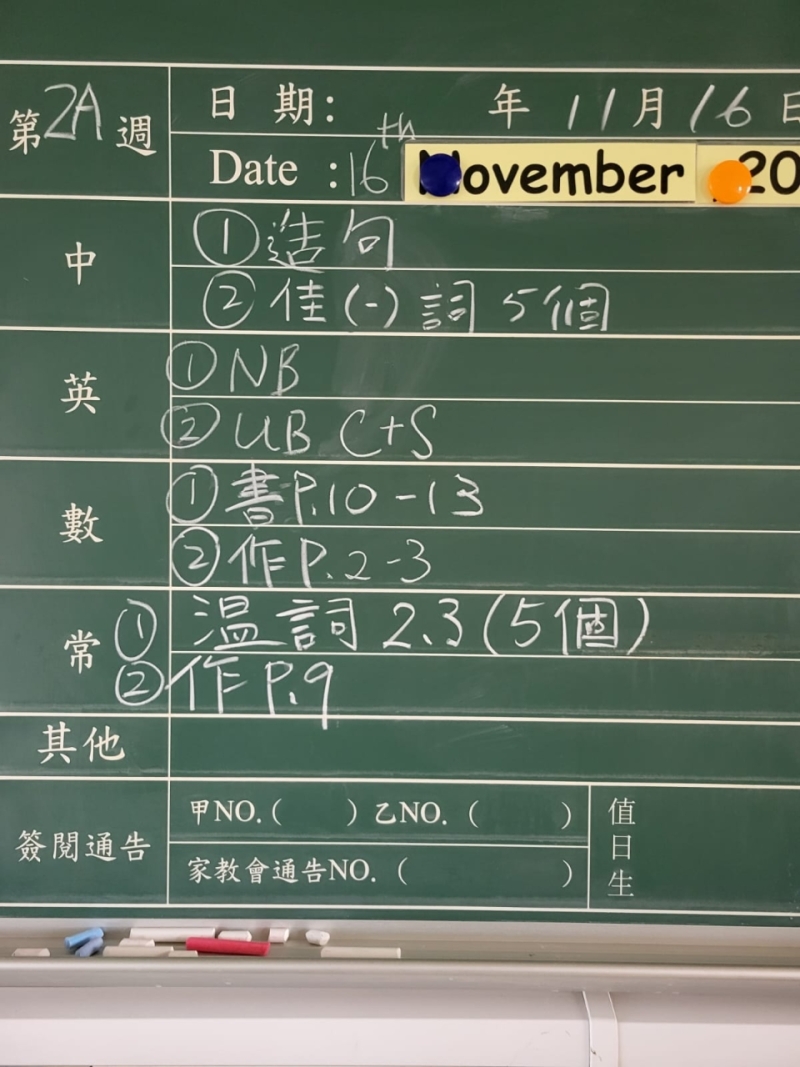 第2A週
日 期: 年 11月16日
Date :16th November 20
中
①造句
②佳(一)詞 5個
英
①NB
②UB C+S
數
①書P.10-13
②作P.2-3
常
①溫詞 2.3(5個)
②作P.9
其他
簽閱通告
甲NO.( )乙NO.( )
家教會通告NO.( )
值日生